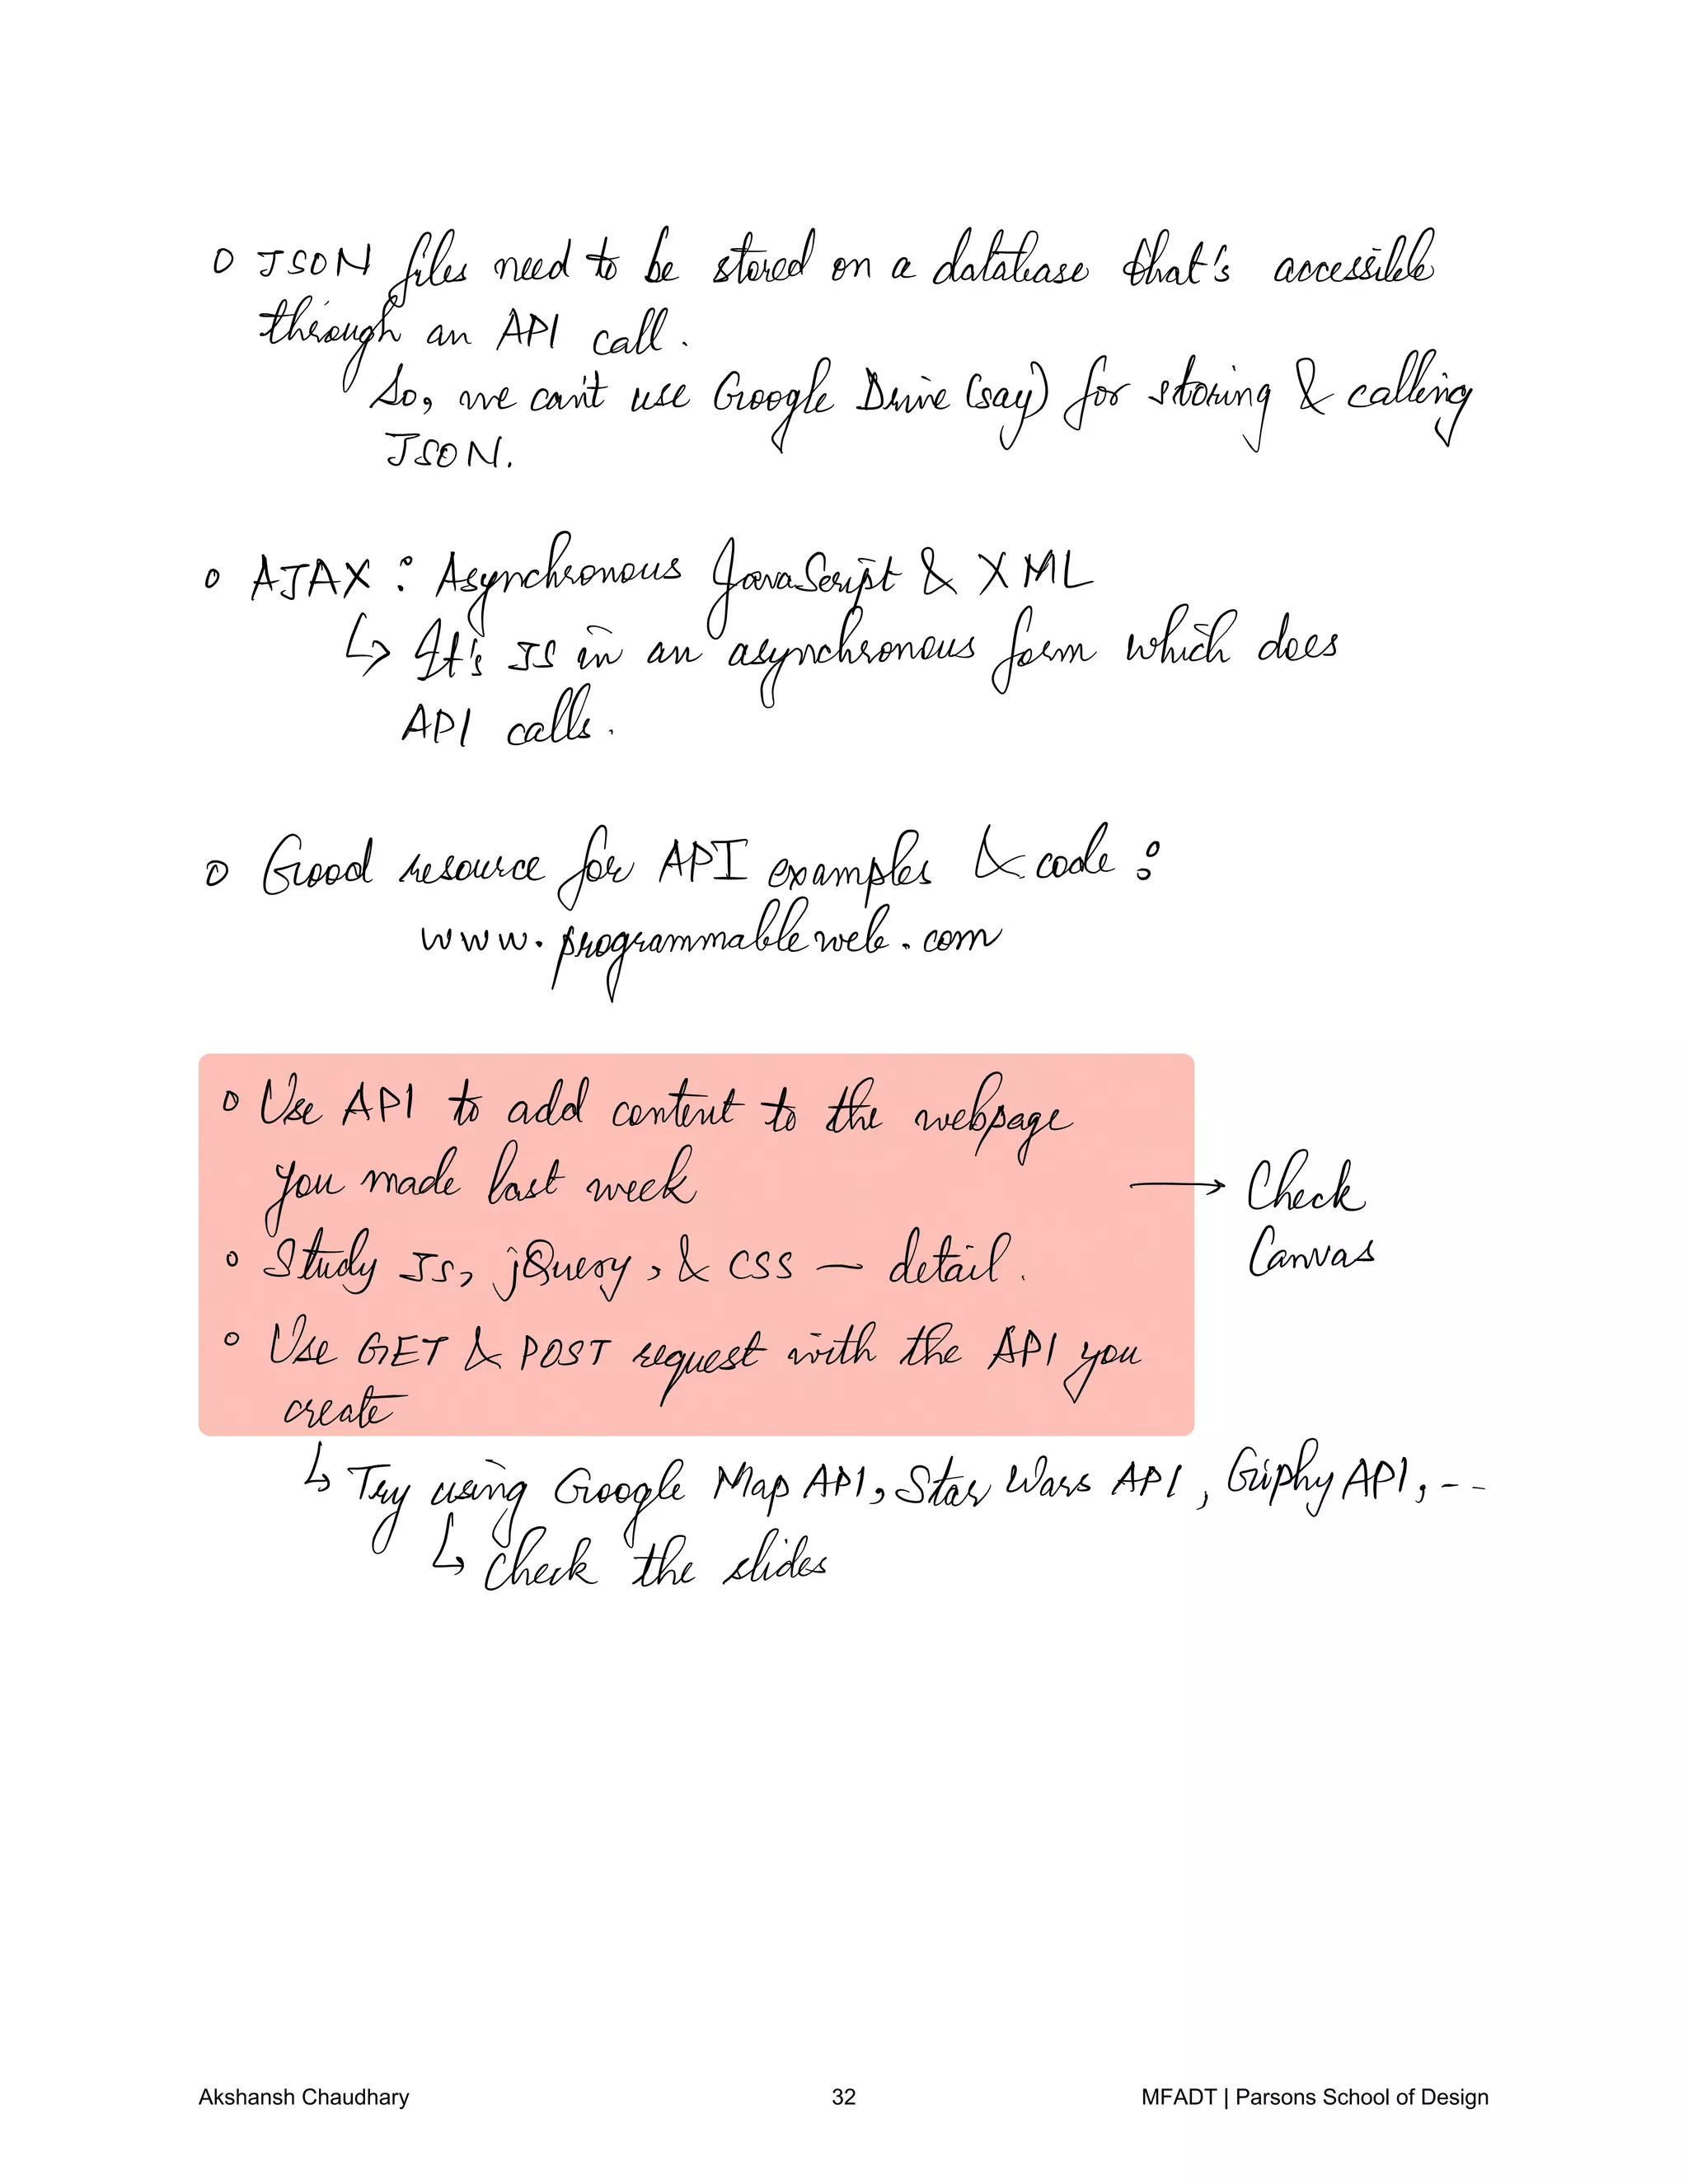 o JSON files need to be stored on a database that's accessible
through an API call.
So, we can't use Google Drive (say) for storing & calling
JSON.
o AJAX : Asynchronous JavaScript & XML
↳ It's JS in an asynchronous form which does
API calls.
o Good resource for API examples & code :
www.programmableweb.com
o Use API to add content to the webpage
you made last week
→ Check
Canvas
o Study JS, jQuery, & CSS — detail.
o Use GET & POST request with the API you
create
↳ Try using Google Map API, Star Wars API, Giphy API, --
↳ Check the slides
Akshansh Chaudhary 32 MFADT | Parsons School of Design